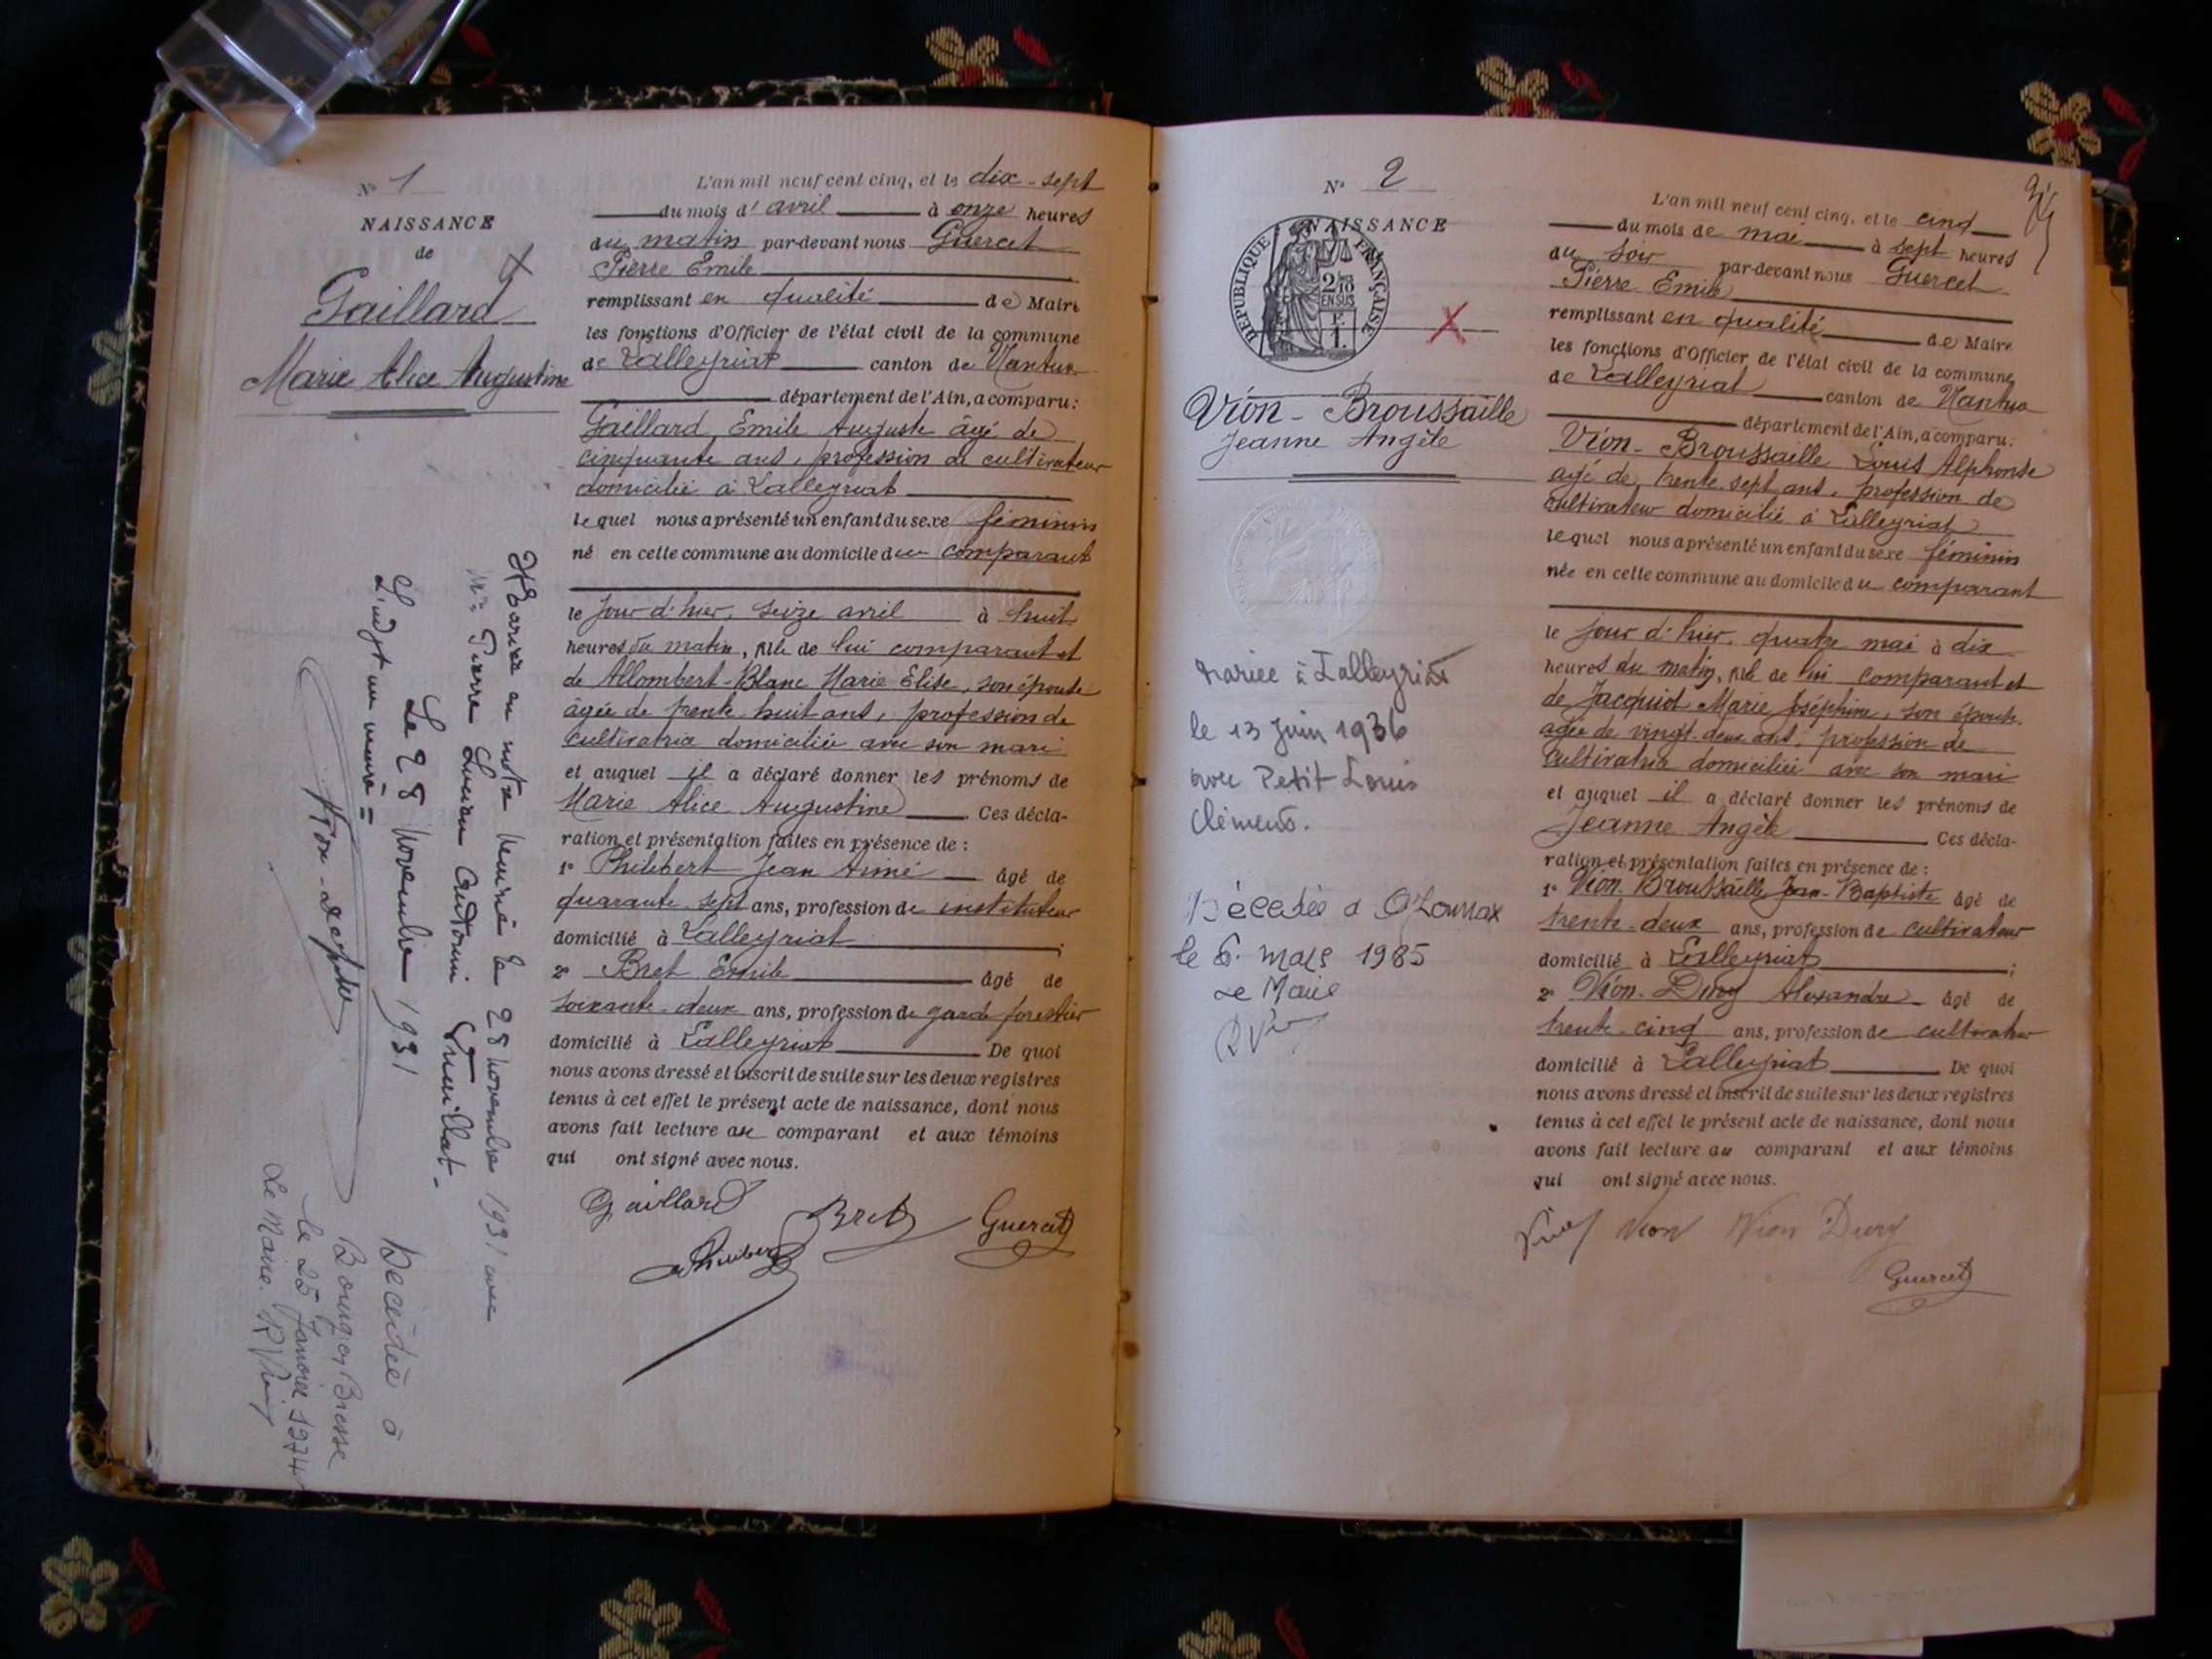 N° 1
NAISSANCE
de
Gaillard
Marie Alice Augustine
L'an mil neuf cent cinq, et le dix-sept
du mois d' avril à onze heures
du matin par-devant nous Guercet
Pierre Emile
remplissant en qualité de Maire
les fonctions d'Officier de l'état civil de la commune
de Lalleyriat canton de Nantua
département de l'Ain, a comparu :
Gaillard Emile Auguste âgé de
cinquante ans, profession de cultivateur
domicilié à Lalleyriat
lequel nous a présenté un enfant du sexe féminin
né en cette commune au domicile du comparant
le jour d'hier, seize avril à huit
heures du matin, fille de lui comparant et
de Allombert-Blanc Marie Elise, son épouse
âgée de trente huit ans, profession de
cultivatrice domiciliée avec son mari
et auquel il a déclaré donner les prénoms de
Marie Alice Augustine Ces décla-
ration et présentation faites en présence de :
1° Philibert Jean Aimé âgé de
quarante sept ans, profession de instituteur
domicilié à Lalleyriat ;
2° Bret Emile âgé de
soixante-deux ans, profession de garde forestier
domicilié à Lalleyriat De quoi
nous avons dressé et inscrit de suite sur les deux registres
tenus à cet effet le présent acte de naissance, dont nous
avons fait lecture au comparant et aux témoins
qui ont signé avec nous.
Gaillard
Bret
Guercet
Philibert
Mariée en notre mairie le 28 novembre 1931 avec
Mr Pierre Lucien Antonin
Le 28 Novembre 1931
Décédée à
Bourg en Bresse
le 25 Janvier 1974
Le Maire
N° 2
NAISSANCE
REPUBLIQUE FRANÇAISE
2/10
EN SUS
F.
1.
Vion-Broussaille
Jeanne Angèle
mariée à Lalleyriat
le 13 Juin 1936
avec Petit Louis
Clément.
Décédée à Oyonnax
le 6 mars 1985
Le Maire
L'an mil neuf cent cinq, et le cinq
du mois de mai à sept heures
du soir par-devant nous Guercet
Pierre Emile
remplissant en qualité de Maire
les fonctions d'Officier de l'état civil de la commune
de Lalleyriat canton de Nantua
département de l'Ain, a comparu :
Vion-Broussaille Louis Alphonse
âgé de trente sept ans, profession de
cultivateur domicilié à Lalleyriat
lequel nous a présenté un enfant du sexe féminin
née en cette commune au domicile du comparant
le jour d'hier, quatre mai à dix
heures du matin, fille de lui comparant et
de Jacquiot Marie Joséphine, son épouse
âgée de vingt-deux ans, profession de
cultivatrice domiciliée avec son mari
et auquel il a déclaré donner les prénoms de
Jeanne Angèle Ces décla-
ration et présentation faites en présence de :
1° Vion-Broussaille Jean-Baptiste âgé de
trente-deux ans, profession de cultivateur
domicilié à Lalleyriat ;
2° Vion-Dury Alexandre âgé de
trente-cinq ans, profession de cultivateur
domicilié à Lalleyriat De quoi
nous avons dressé et inscrit de suite sur les deux registres
tenus à cet effet le présent acte de naissance, dont nous
avons fait lecture au comparant et aux témoins
qui ont signé avec nous.
Vion Vion Vion Dury
Guercet